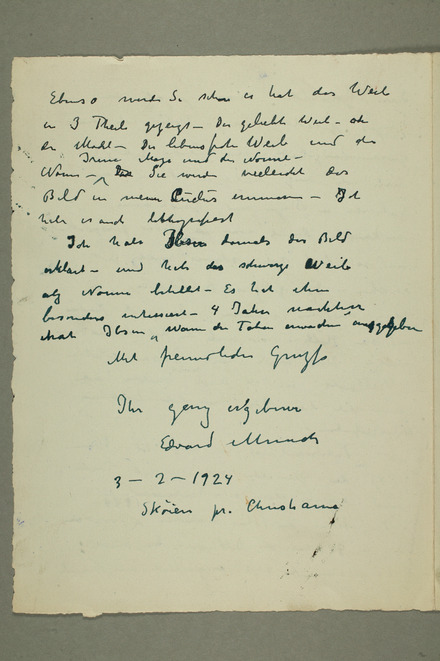 Ebenso werden Sie sehen es hat das Weib
in 3 Theile gezeigt – Das geliebte Weib – oder
die Madl – Das lebensfrohe Weib und die
Nonne – Irene Maja und die Nonne –
Sie werden vielleicht das
Bild in meinem Cuclus erinnern – Ich
habe es auch lithografiert
Ich habe Ibsen damals das Bild
erklärt – und habe das schwarze Weib
als Nonne betitelt – Es hat ihm
besonders interessiert – 4 Jahre nachher
hat Ibsen „Wann die Toten erwachen" ausgegeben
Mit freundlichen Gruss
Ihr ganz ergebener
Edvard Munch
3 – 2 – 1924
Skøien pr. Christiania